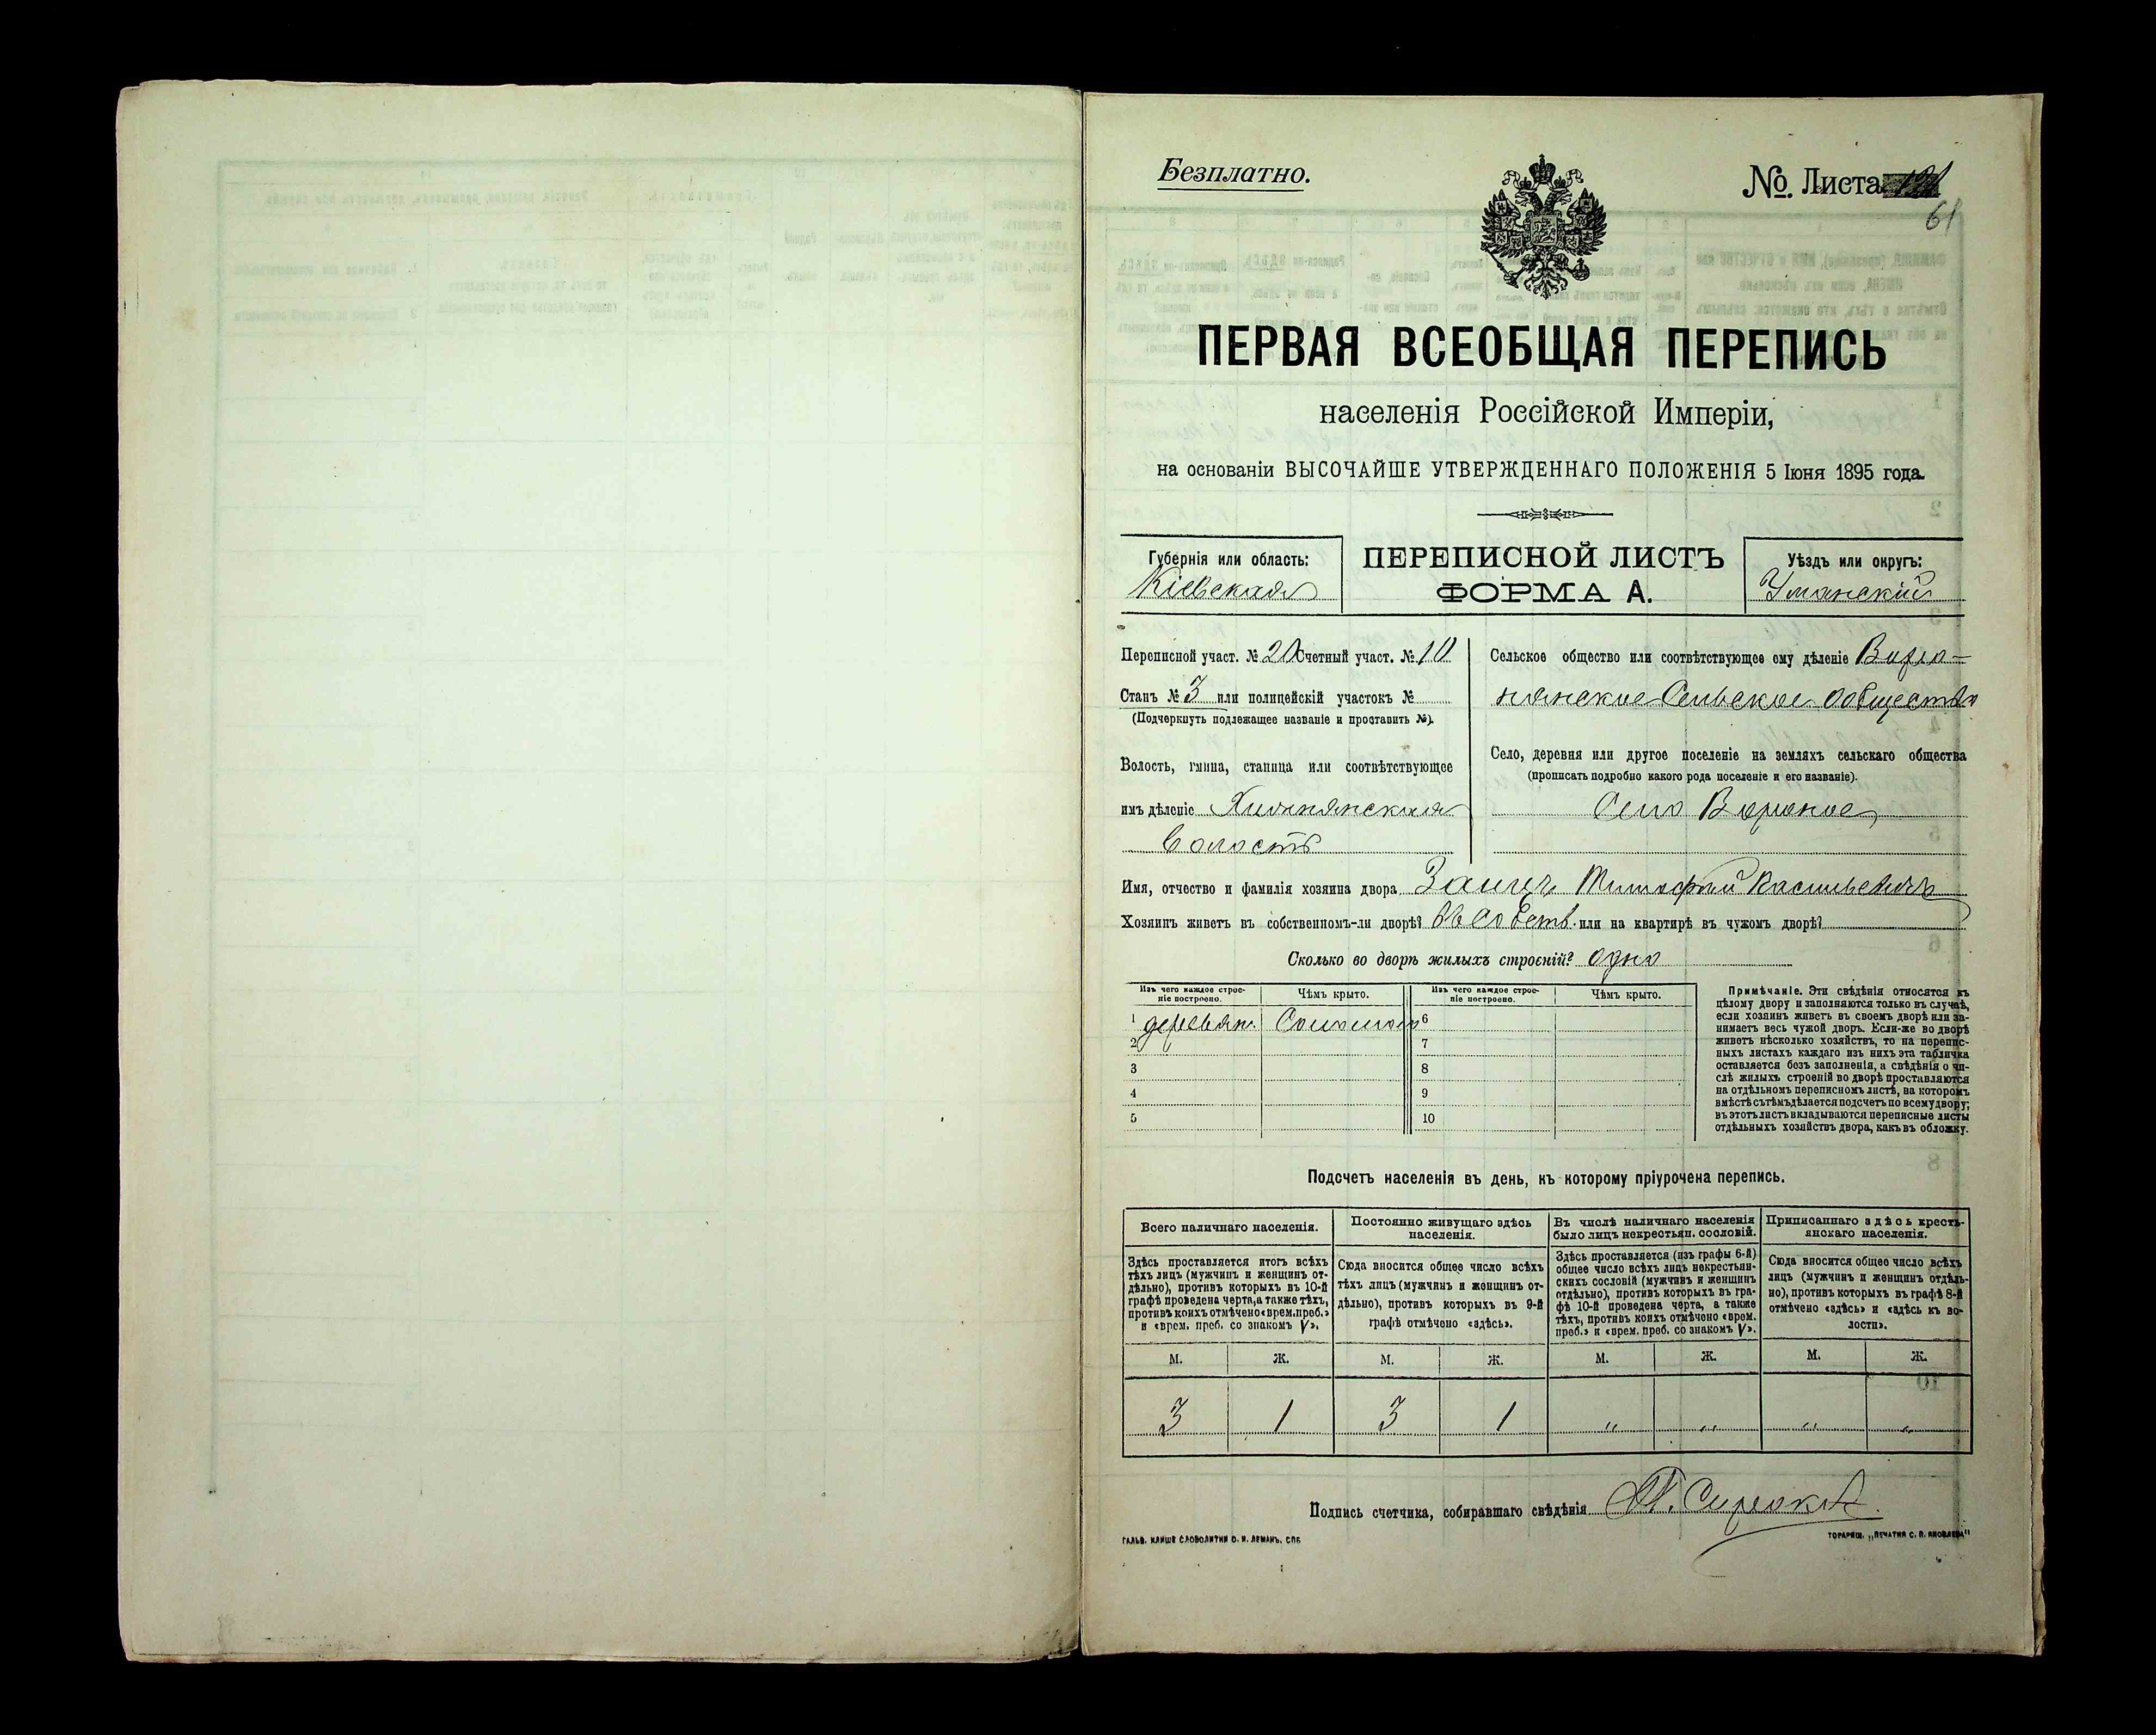 Безплатно.
№ Листа
61
ПЕРВАЯ ВСЕОБЩАЯ ПЕРЕПИСЬ
населенія Россійской Имперіи,
на основаніи ВЫСОЧАЙШЕ УТВЕРЖДЕННАГО ПОЛОЖЕНІЯ 5 Іюня 1895 года.
Губернія или область:
Кіевская
ПЕРЕПИСНОЙ ЛИСТЪ
ФОРМА А.
Уѣздъ или округъ:
Уманскій
Переписной участ. № 20 Счетный участ. № 10
Станъ № 3 или полицейскій участокъ №
(Подчеркнуть подлежащее названіе и проставить №).
Волость, гмина, станица или соотвѣтствующее
имъ дѣленіе
волость
Сельское общество или соотвѣтствующее ему дѣленіе Воро-
нянское Сельское общество
Село, деревня или другое поселеніе на земляхъ сельскаго общества
(прописать подробно какого рода поселеніе и его названіе).
Село Вороное
Имя, отчество и фамилія хозяина двора Заицъ Митрофий Васильевичъ
Хозяинъ живетъ въ собственномъ-ли дворѣ? въ собств. или на квартирѣ въ чужомъ дворѣ?
Сколько во дворѣ жилыхъ строеній? одно
Изъ чего каждое строе-
ніе построено.
Чѣмъ крыто.
Изъ чего каждое строе-
ніе построено.
Чѣмъ крыто.
1 деревян. Соломой 6
2 7
3 8
4 9
5 10
Примѣчаніе. Эти свѣдѣнія относятся къ
цѣлому двору и заполняются только въ случаѣ,
если хозяинъ живетъ въ своемъ дворѣ или за-
нимаетъ весь чужой дворъ. Если-же во дворѣ
живетъ нѣсколько хозяйствъ, то на перепис-
ныхъ листахъ каждаго изъ нихъ эта табличка
оставляется безъ заполненія, а свѣдѣнія о чи-
слѣ жилыхъ строеній во дворѣ проставляются
на отдѣльномъ переписномъ листѣ, на которомъ
вмѣстѣ съ тѣмъ дѣлается подсчетъ по всему двору;
въ этотъ листъ вкладываются переписные листы
отдѣльныхъ хозяйствъ двора, какъ въ обложку.
Подсчетъ населенія въ день, къ которому пріурочена перепись.
Всего наличнаго населенія.
Постоянно живущаго здѣсь
населенія.
Въ числѣ наличнаго населенія
было лицъ некрестьян. сословій.
Приписаннаго здѣсь кресть-
янскаго населенія.
Здѣсь проставляется итогъ всѣхъ
тѣхъ лицъ (мужчинъ и женщинъ от-
дѣльно), противъ которыхъ въ 10-й
графѣ проведена черта, а также тѣхъ,
противъ коихъ отмѣчено «врем. преб.»
и «врем. преб. со знакомъ V».
Сюда вносится общее число всѣхъ
тѣхъ лицъ (мужчинъ и женщинъ от-
дѣльно), противъ которыхъ въ 9-й
графѣ отмѣчено «здѣсь».
Здѣсь проставляется (изъ графы 6-й)
общее число всѣхъ лицъ некрестьян-
скихъ сословій (мужчинъ и женщинъ
отдѣльно), противъ которыхъ въ гра-
фѣ 10-й проведена черта, а также
тѣхъ, противъ коихъ отмѣчено «врем.
преб.» и «врем. преб. со знакомъ V».
Сюда вносится общее число всѣхъ
лицъ (мужчинъ и женщинъ отдѣль-
но), противъ которыхъ въ графѣ 8-й
отмѣчено «здѣсь» и «здѣсь къ во-
лости».
М. Ж. М. Ж. М. Ж. М. Ж.
3 1 3 1 „ „ „ „
Подпись счетчика, собиравшаго свѣдѣнія
ГАЛЬВ. КЛИШЕ СЛОВОЛИТНИ О. И. ЛЕМАНЪ, СПБ
ТОВАРИЩ. „ПЕЧАТНЯ С. П. ЯКОВЛЕВА"